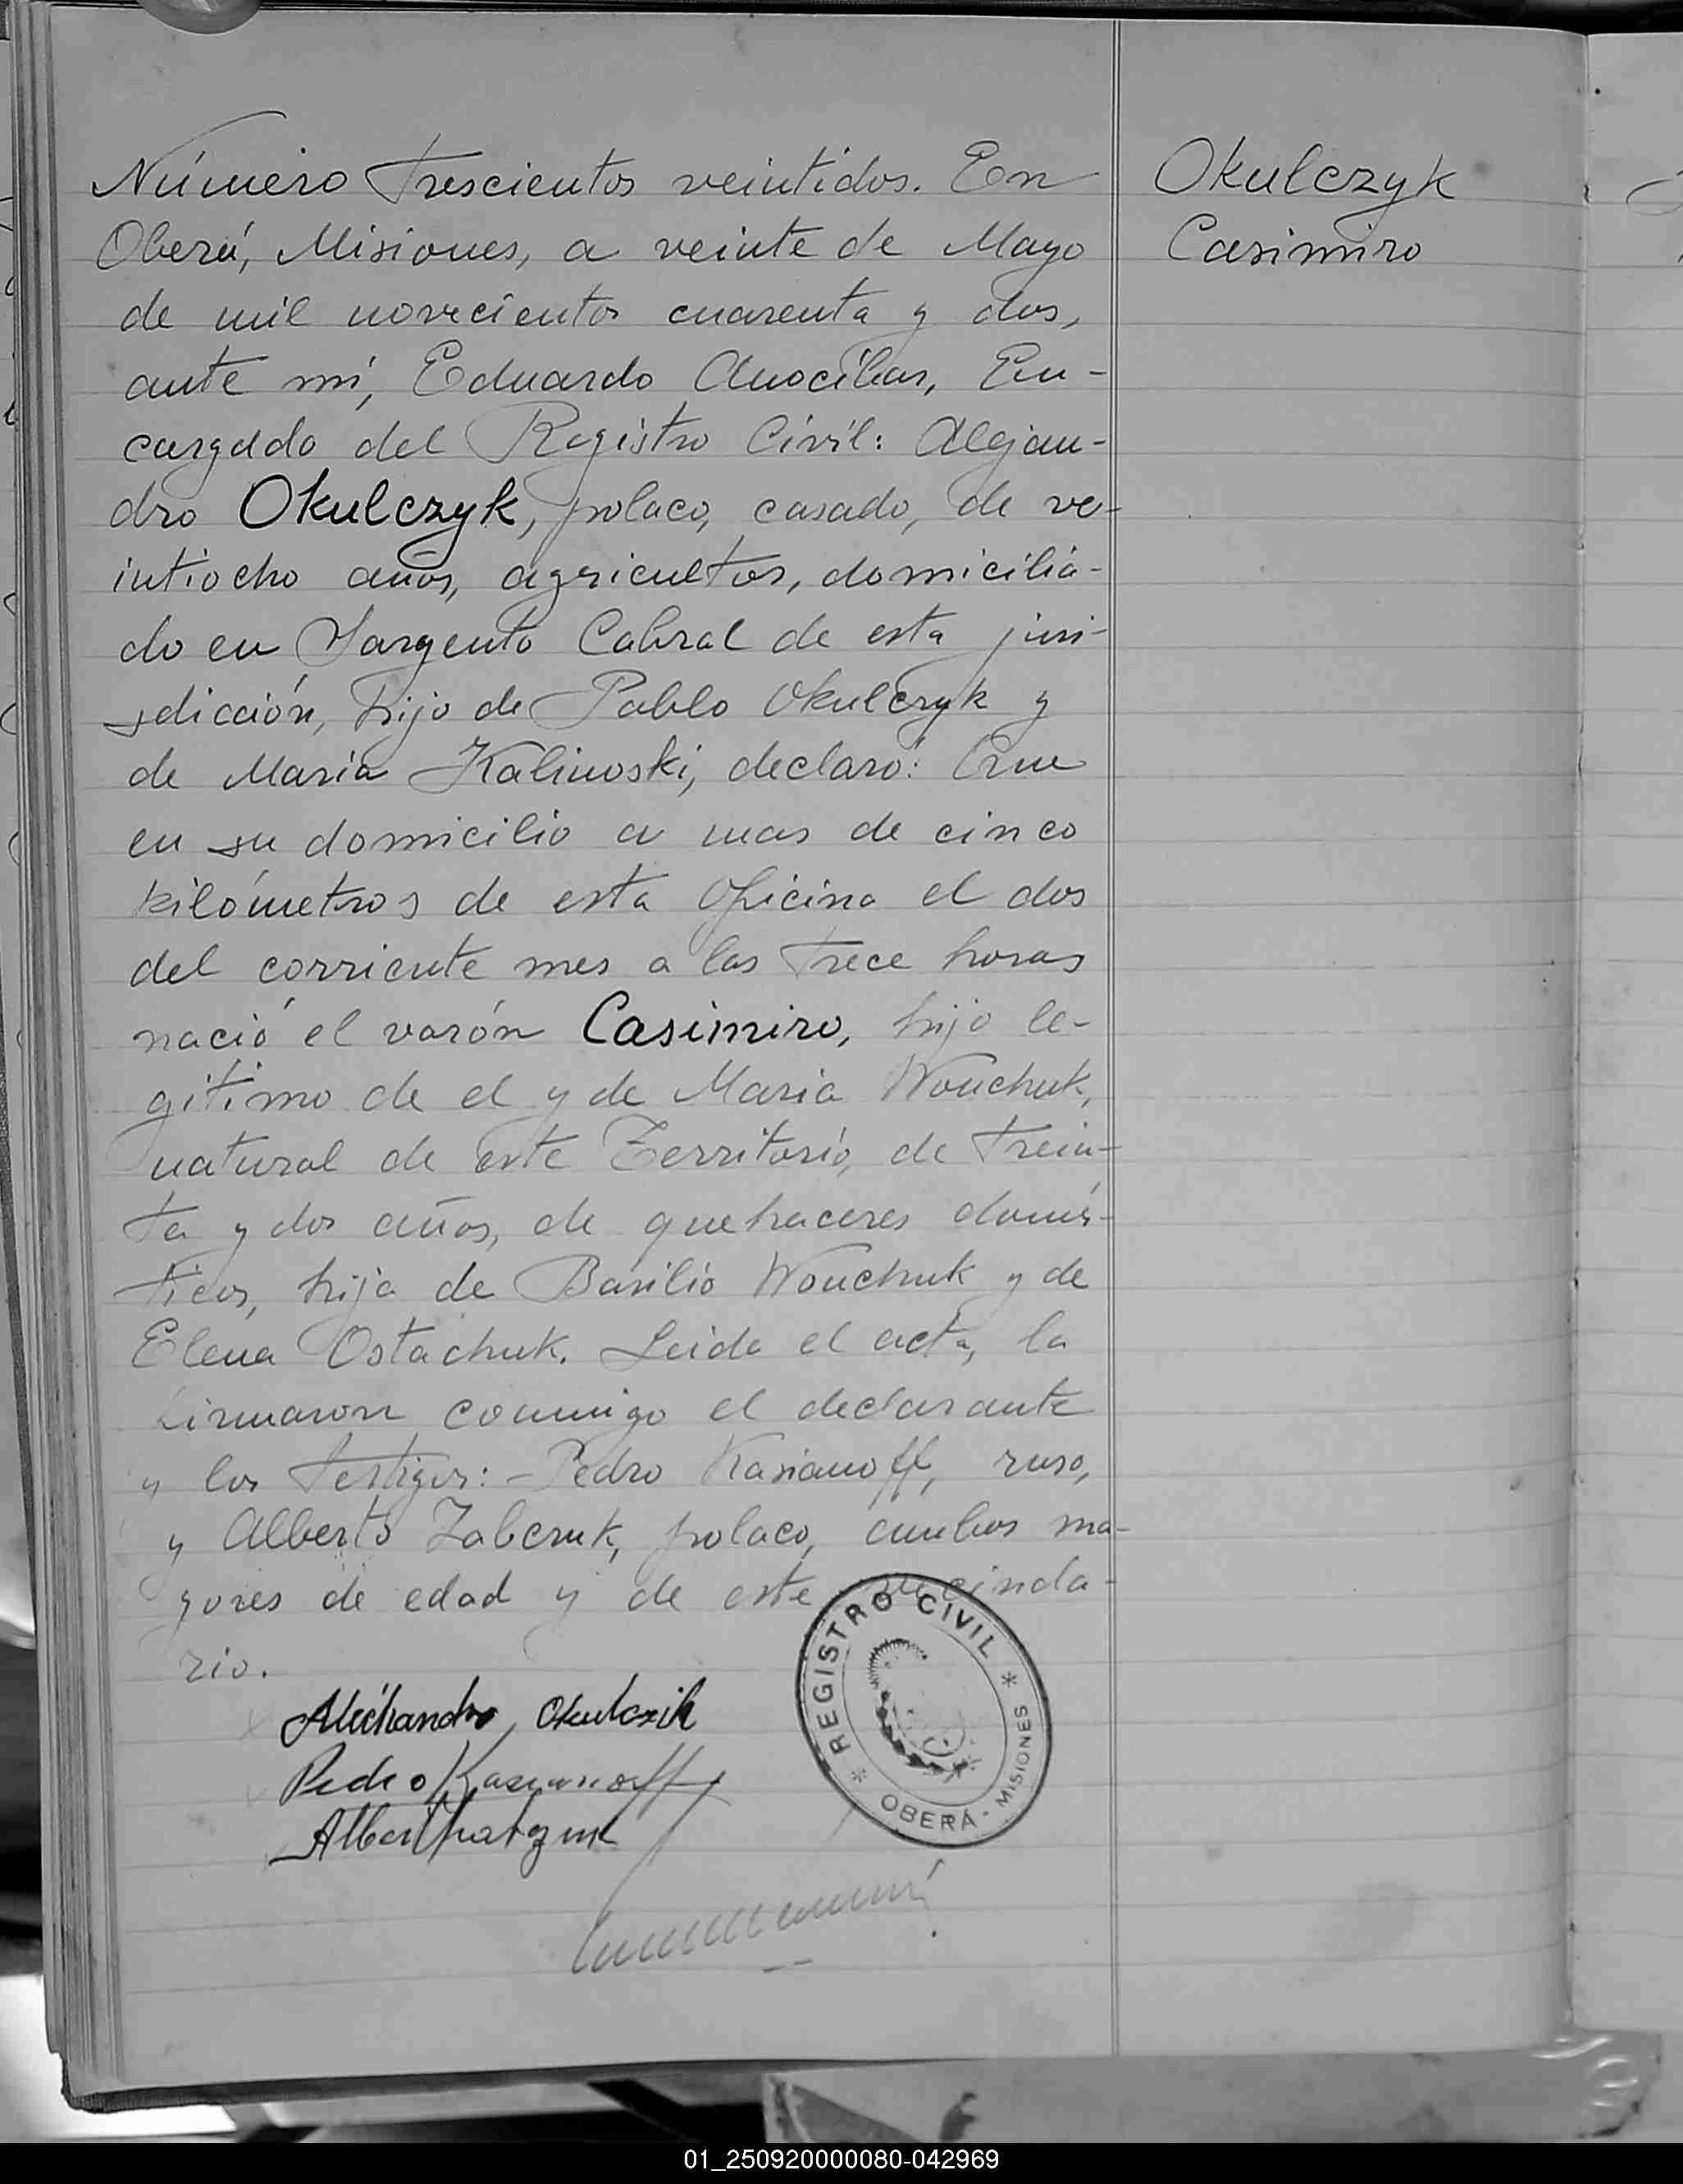 Número trescientos veintidos. En
Oberá, Misiones, a veinte de Mayo
de mil novecientos cuarenta y dos,
ante mí, Eduardo Anocibar, En-
cargado del Registro Civil: Alejan-
dro Okulczyk, polaco, casado, de ve-
intiocho años, agricultor, domicilia-
do en Sargento Cabral de esta juri-
sdicción, hijo de Pablo Okulczyk y
de Maria Kalinoski, declaró: Que
en su domicilio a mas de cinco
kilómetros de esta Oficina el dos
del corriente mes a las trece horas
nació el varón Casimiro, hijo le-
gitimo de el y de Maria Wonchuk,
natural de este Territorio, de trein-
ta y dos años, de quehaceres domés-
ticos, hija de Basilio Wonchuk y de
Elena Ostachuk. Leida el acta, la
firmaron conmigo el declarante
y los testigos: - Pedro Kasianoff, ruso,
y Alberto Zabczuk, polaco, ambos ma-
yores de edad y de este vecinda-
rio.
Alechandro Okulczik
Pedro Kasianoff
REGISTRO CIVIL
OBERÁ - MISIONES
Okulczyk
Casimiro
01_250920000080-042969